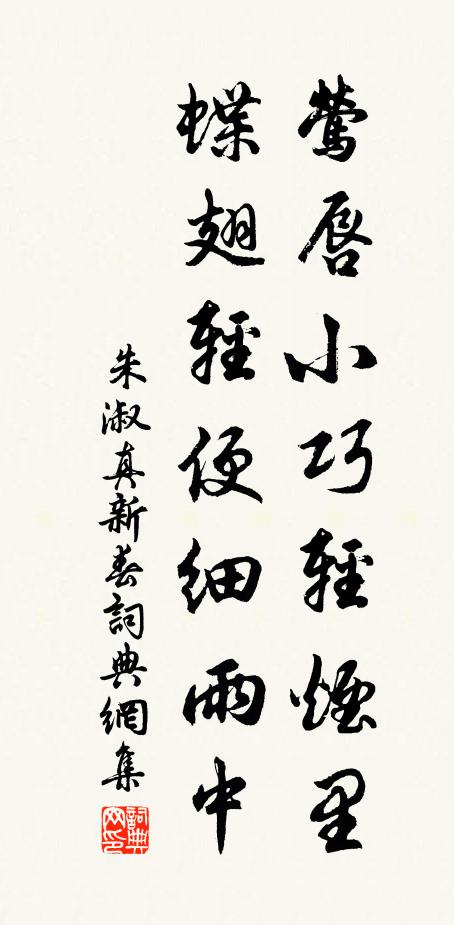 鶯唇小巧輕煙里
蝶翅輕便細雨中
朱淑真新春詞典網集
詞典网印